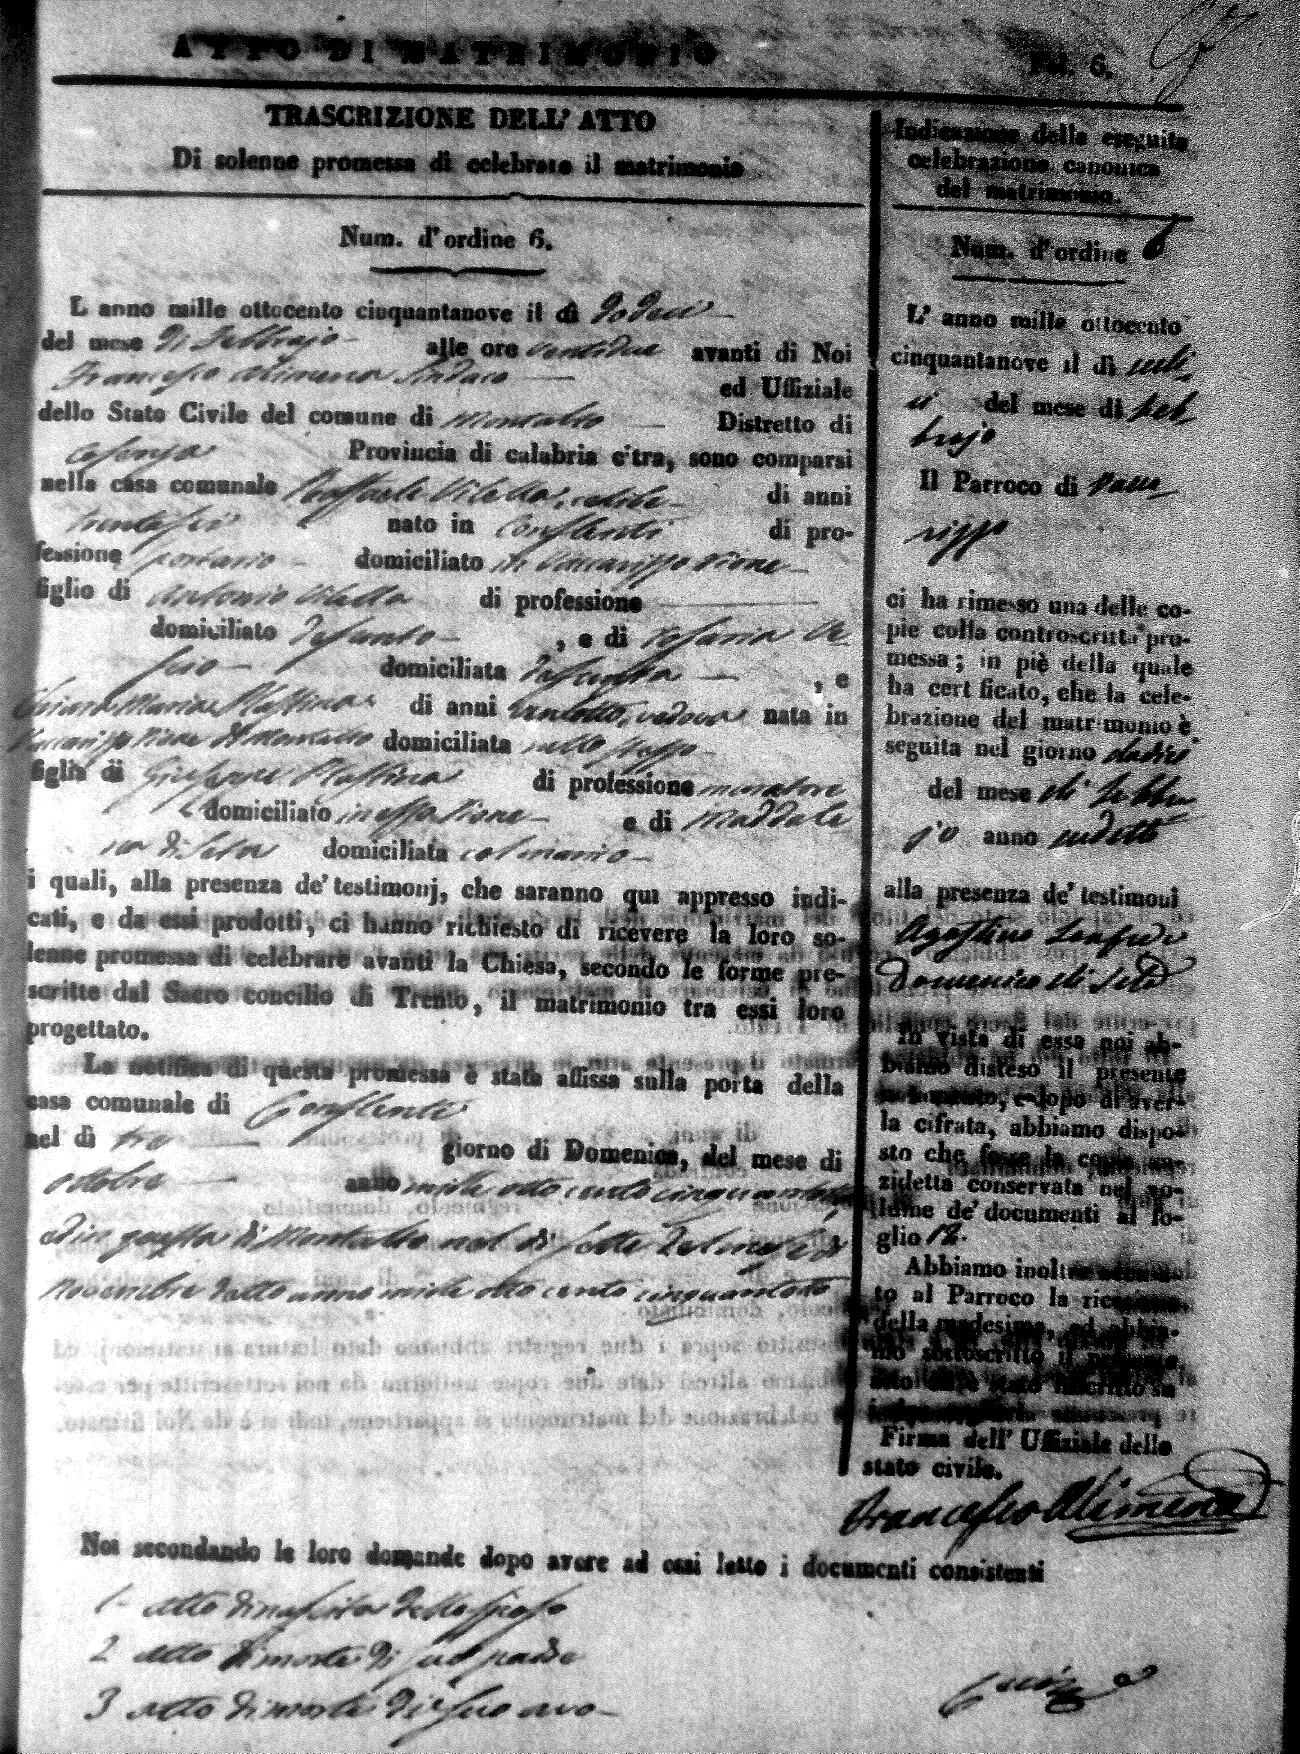 ATTO DI MATRIMONIO
Fol. 6.
TRASCRIZIONE DELL' ATTO
Di solenne promessa di celebrare il matrimonio
Num. d'ordine 6.
L anno mille ottocento cinquantanove il dì dodeci
del mese di Febbrajo alle ore ventidue avanti di Noi
Francesco Alimena Sindaco ed Uffiziale
dello Stato Civile del comune di Montalto Distretto di
Cosenza Provincia di calabria citra, sono comparsi
nella casa comunale Raffaele Vilella, celibe di anni
trentasei nato in Conflenti di pro-
fessione domiciliato in Vaccarizzo Rione
figlio di Antonio Vilella di professione
domiciliato defunto , e di
domiciliata defunta , e
Chiara Maria di anni ventotto, vedova nata in
Vaccarizzo Rione di Montalto domiciliata nello stesso
figlia di Giuseppe di professione muratore
domiciliato in esso Rione e di Maddale
na di Seta domiciliata col marito
i quali, alla presenza de' testimonj, che saranno qui appresso indi-
cati, e da essi prodotti, ci hanno richiesto di ricevere la loro so-
lenne promessa di celebrare avanti la Chiesa, secondo le forme pre-
scritte dal Sacro concilio di Trento, il matrimonio tra essi loro
progettato.
La notifica di questa promessa è stata affissa sulla porta della
casa comunale di Conflenti
nel dì tre giorno di Domenica, del mese di
ottobre anno mille otto cento cinquantotto
ed in quella di Montalto nel dì sette del mese di
Novembre detto anno mille otto cento cinquantotto
Indicazione della eseguita
celebrazione canonica
del matrimonio.
Num. d'ordine 6
L' anno mille ottocento
cinquantanove il dì sedi
ci del mese di Feb
brajo
Il Parroco di Vacca
rizzo
ci ha rimesso una delle co-
pie colla controscritta pro-
messa; in piè della quale
ha cert ficato, che la cele-
brazione del matrimonio è
seguita nel giorno dodici
del mese di Febbra
jo anno sudetto
alla presenza de' testimoni
Agostino
Domenico di Seta
In vista di essa noi ab-
biamo disteso il presente
e dopo di aver-
la cifrata, abbiamo dispo-
sto che fosse la copia an-
zidetta conservata nel vo-
lume de' documenti al fo-
glio 12.
Abbiamo inoltre
to al Parroco la ricezione
della medesima, ed abbia-
mo sottoscritto il presente
atto
Firma dell' Uffiziale dello
stato civile.
Francesco Alimena
Noi secondando le loro domande dopo avere ad essi letto i documenti consistenti
1 atto di nascita dello sposo
2 atto di morte di suo padre
3 atto di morte di suo avo